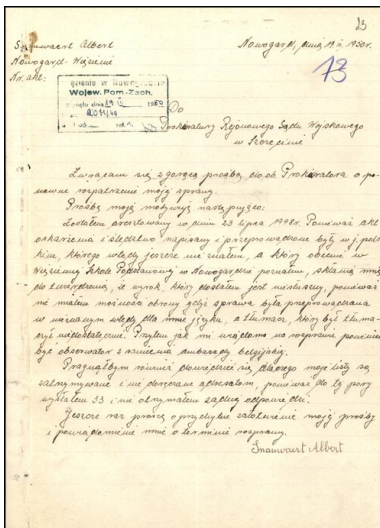 23
Snauwaert Albert
Nowogard, dnia 19.II.1950r.
Nowogard-Więzienie
Nr. akt:
73
Wojew. Pom-Zach.
dnia
1950
Do
Prokuratury Rejonowego Sądu Wojskowego
w Szczecinie
Zwracam się z gorącą prośbą do ob. Prokuratora o po-
nowne rozpatrzenie mojej sprawy.
Prośbę moją motywuję następująco:
Zostałem aresztowany w dniu 23 lipca 1948r. Ponieważ akt
oskarżenia i śledztwo napisany i przeprowadzone były w j. pols-
kim, którego wtedy jeszcze nie znałem, a który obecnie w
Więziennej Szkole Podstawowej w Nowogardzie poznałem, skłania mnie
do twierdzenia, iż wyrok, który dostałem jest niesłuszny, ponieważ
nie miałem możności obrony gdyż sprawa była przeprowadzona
w nieznanym wtedy dla mnie języku, a tłumacz, który był tłuma-
czył niedostatecznie. Przytem jak mi wiadomo na rozprawie powinien
być obserwator z ramienia ambasady belgijskiej.
Pragnąłbym również dowiedzieć się dlaczego moje listy są
zatrzymywane i nie doręczane adresatom, ponieważ do tej pory
wysłałem 33 i nie otrzymałem żadnej odpowiedzi.
Jeszcze raz proszę o przychylne załatwienie mojej prośby
i powiadomienie mnie o terminie rozprawy.
Snauwaert Albert